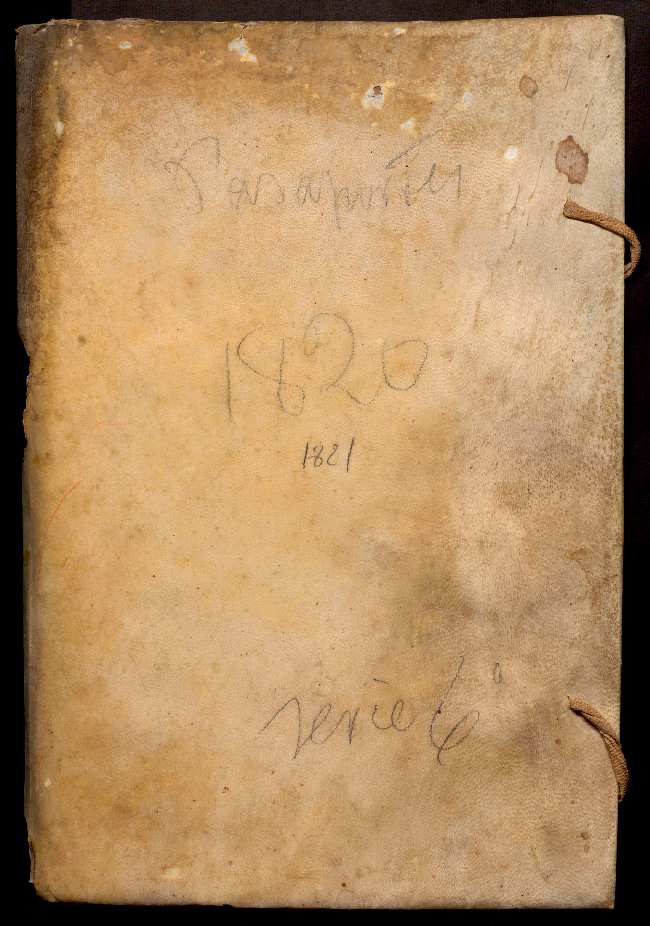 Pasaportes
1820
1821
serie 6ª